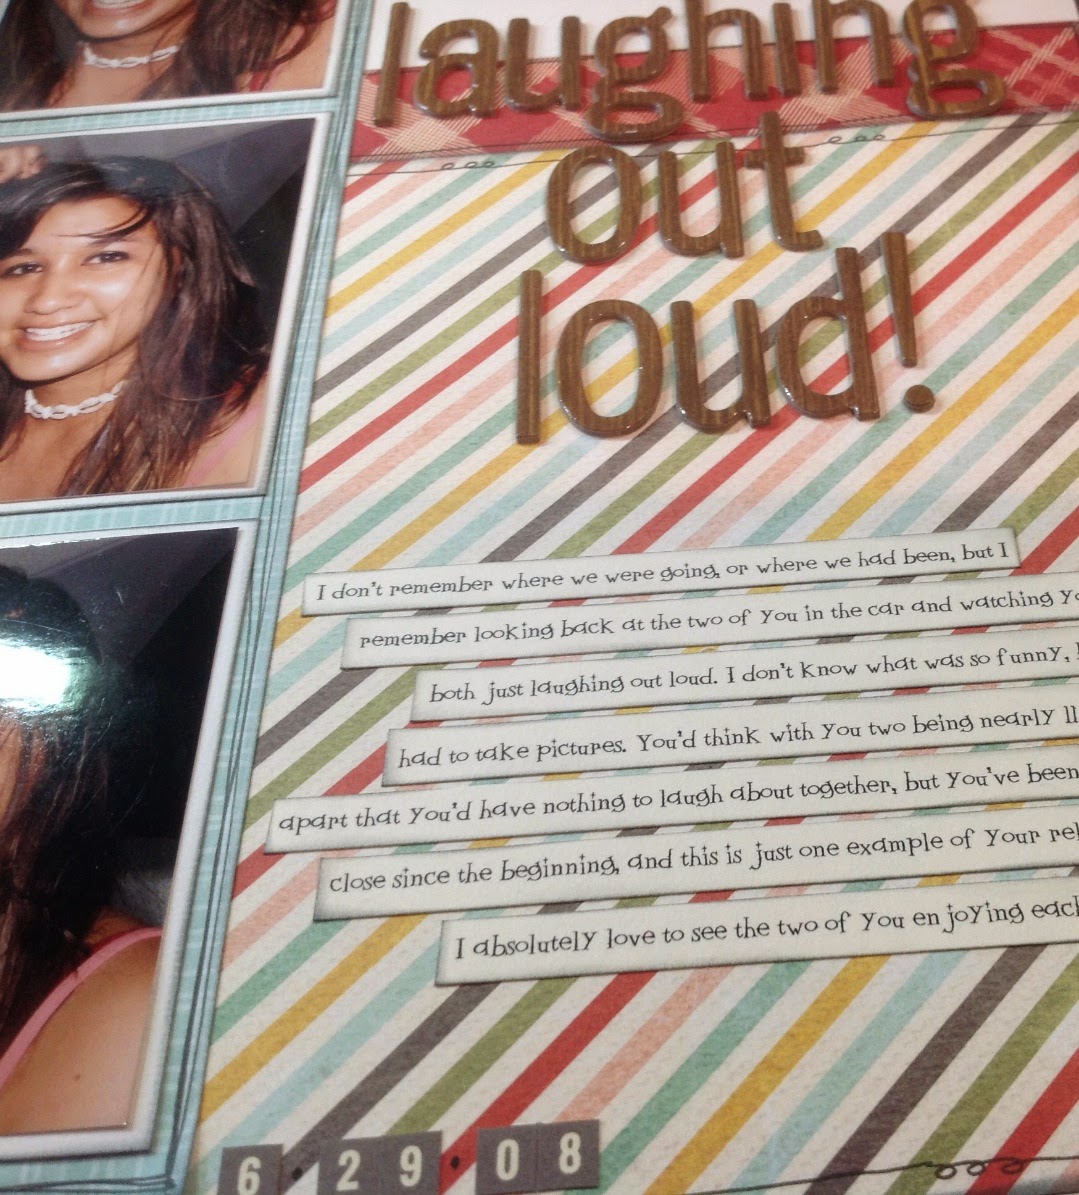 laughing
out
loud!
I don't remember where we were going, or where we had been, but I
remember looking back at the two of you in the car and watching
both just laughing out loud. I don't know what was so funny,
had to take pictures. You'd think with you two being nearly 11
apart that you'd have nothing to laugh about together, but you've been
close since the beginning, and this is just one example of your
I absolutely love to see the two of you enjoying each
6·29·08